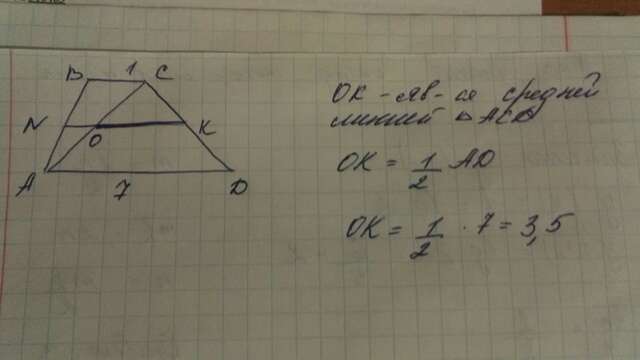 B 1 C
N O K
A 7 D
OK - яв-ся средней
линией ▵ ACD
OK = 1/2 AD
OK = 1/2 · 7 = 3,5